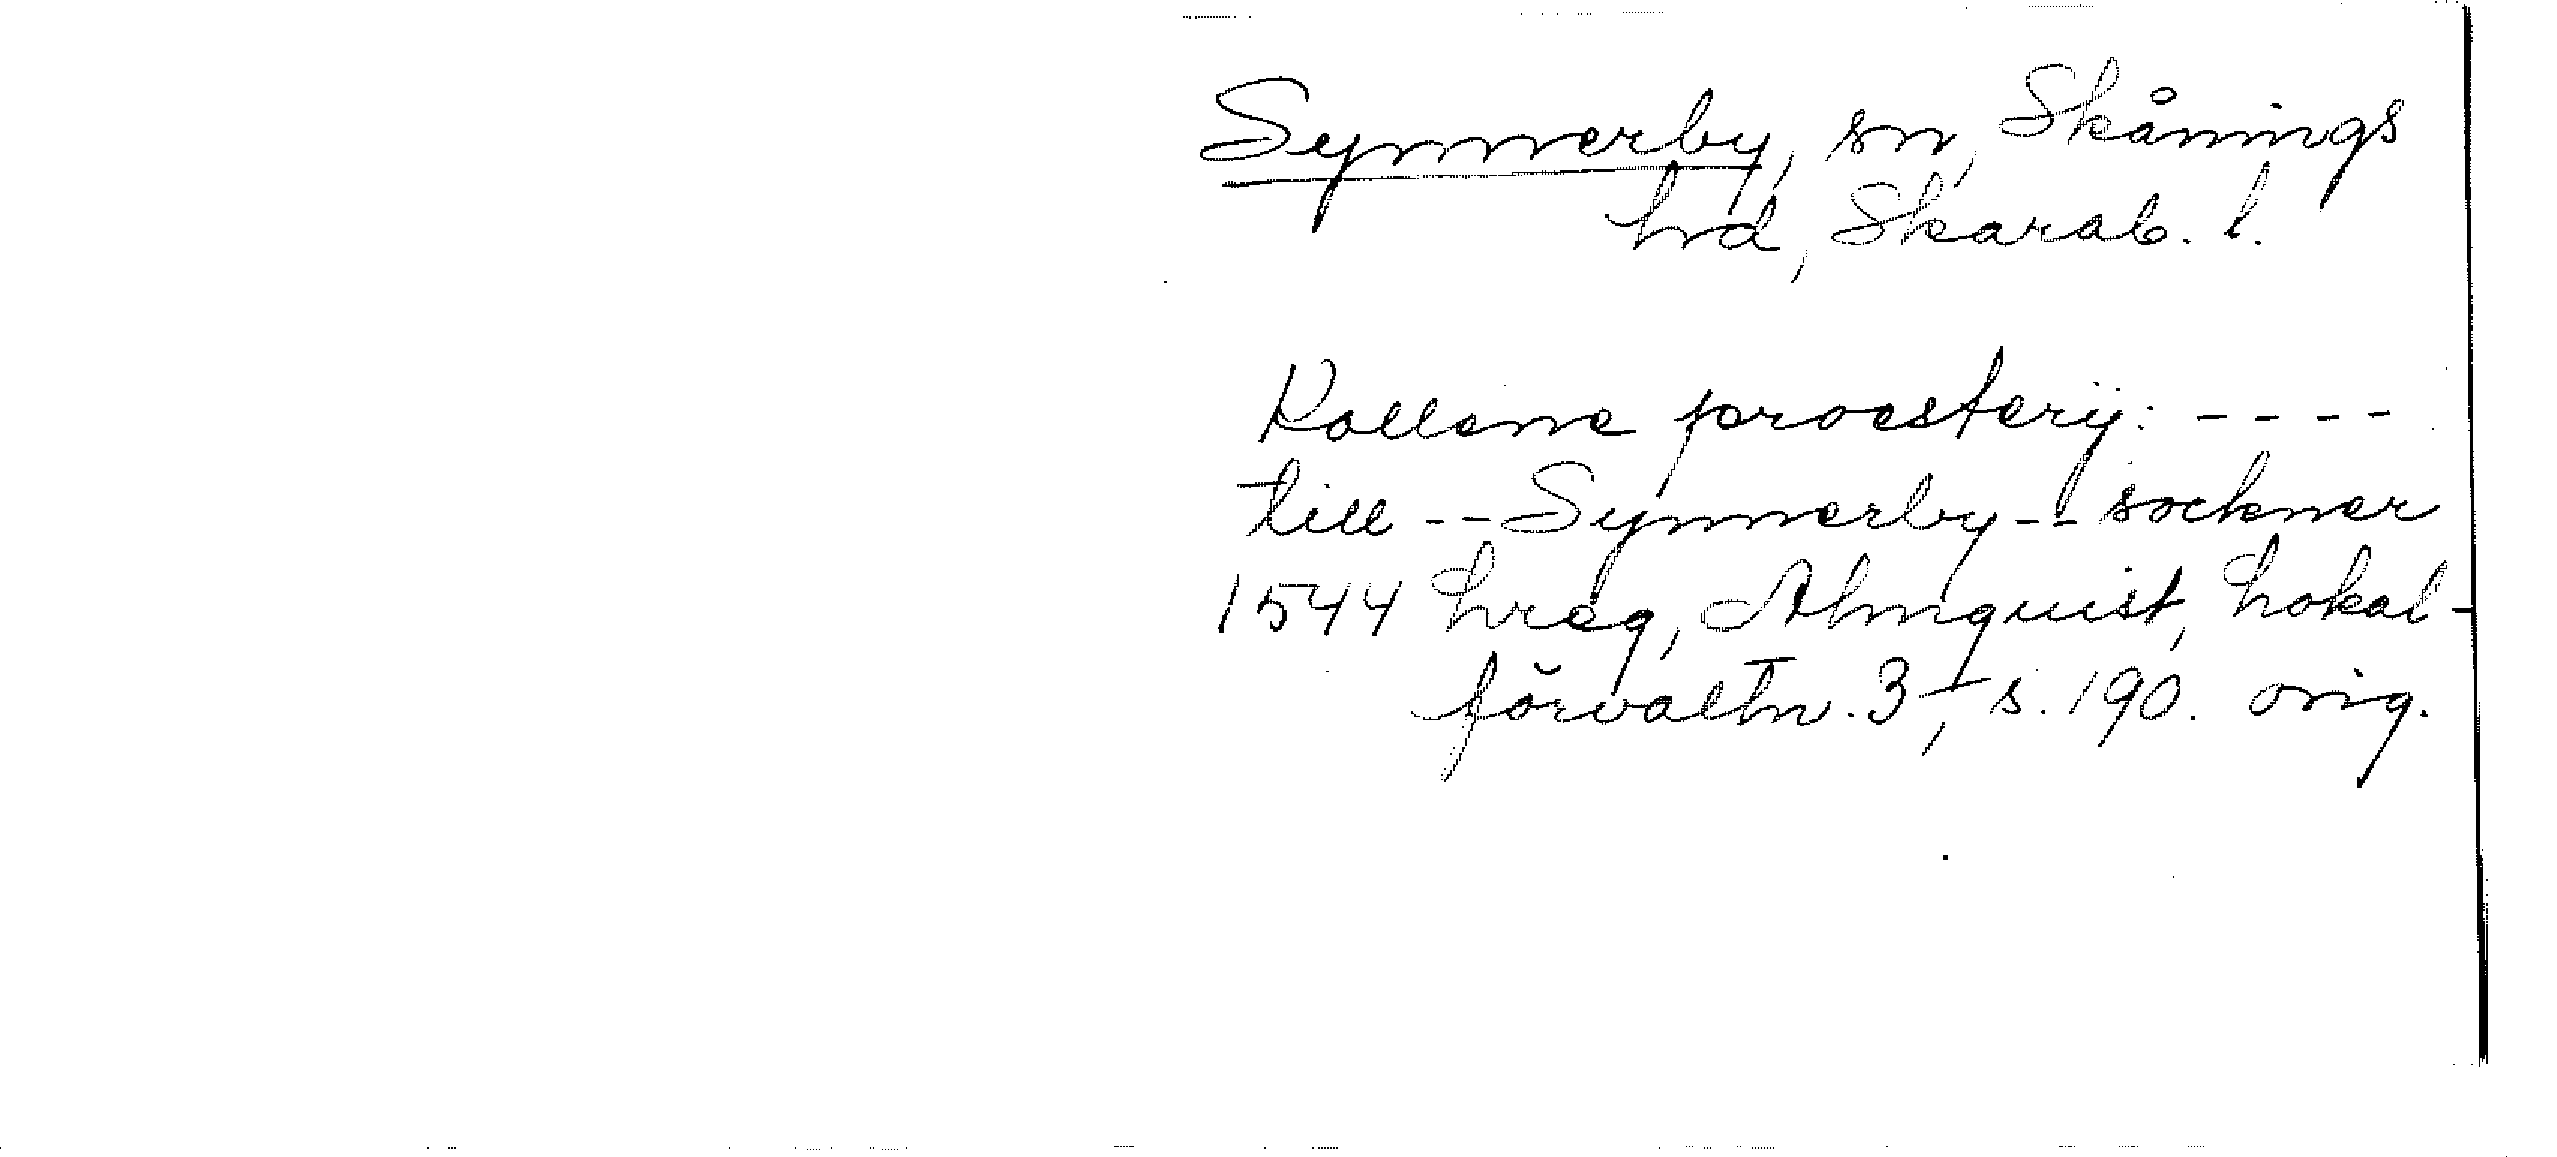 Synnerby, sn, Skånings
hd, Skarab. l.
Kollene proesterij: ----
till -- Synnerby -- sockner
1544 hreg, Almquist, Lokal-
förvaltn. 3, s. 190. orig.